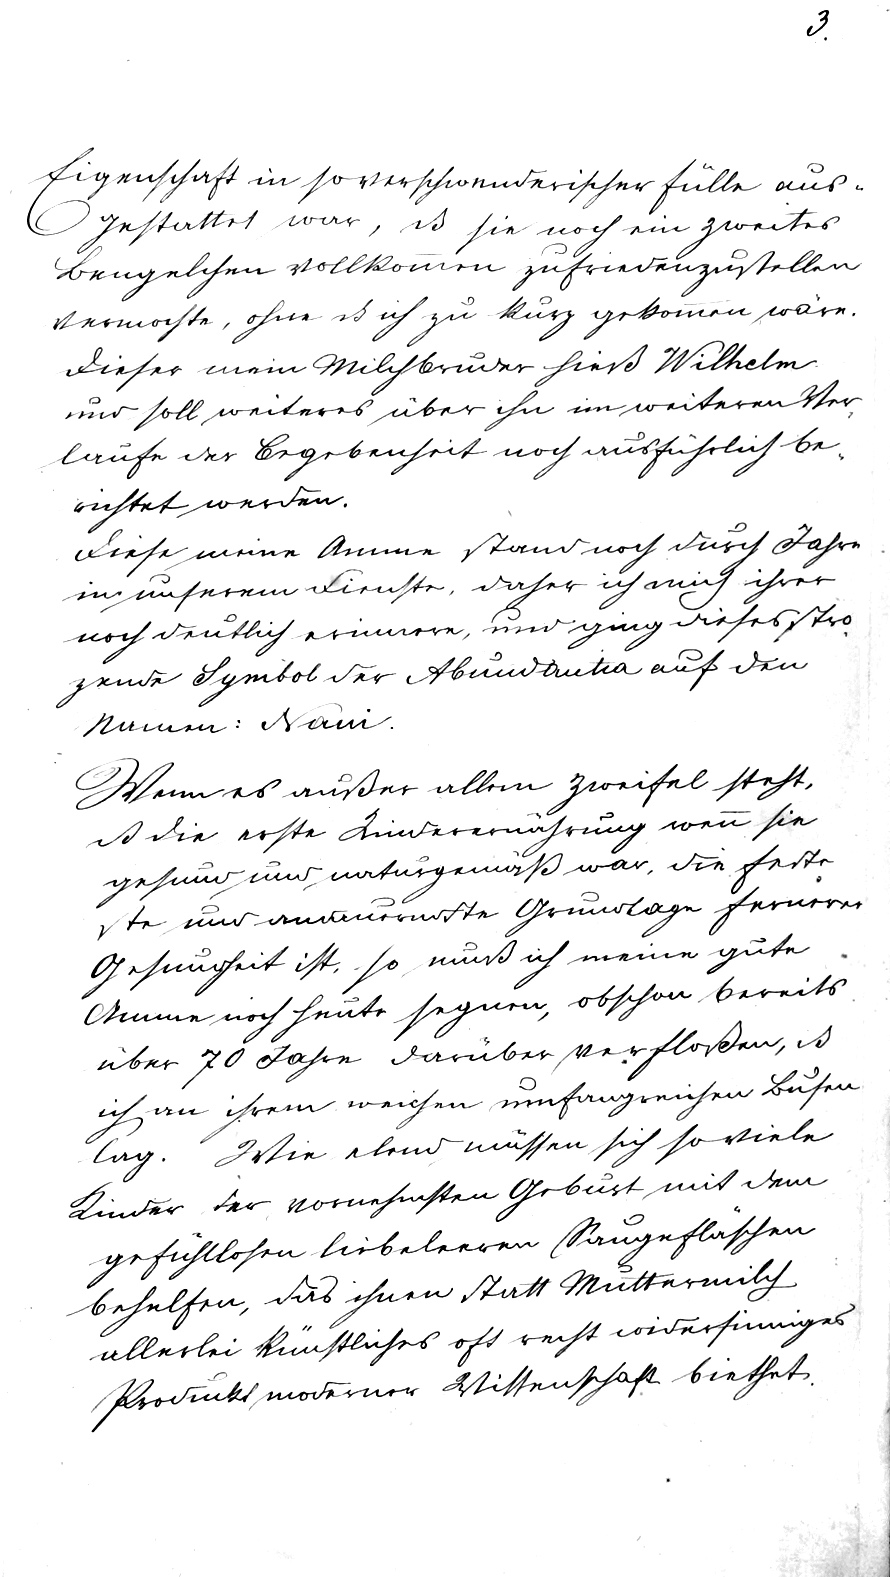 3.
Eigenschaft in so verschwenderischer Fülle aus-
gestattet war, dß sie noch ein zweites
Bengelchen vollkom̄en zufriedenzustellen
vermochte, ohne dß ich zu kurz gekom̄en wäre.
Dieser mein Milchbruder hieß Wilhelm
und soll weiteres über ihn im weiteren Ver-
laufe der Begebenheit noch ausführlich be-
richtet werden.
Diese meine Amme stand noch durch Jahre
in unserem Dienste, daher ich mich ihrer
noch deutlich erinnere, und ging dieses stro-
zende Symbol der Abundantia auf den
Namen: Nani.
Wenn es außer allem Zweifel steht,
dß die erste Kinderernährung wen̄ sie
gesund und naturgemäß war, die feste
ste und Grundlage fernerer
Gesundheit ist, so muß ich meine gute
Amme noch heute segnen, obschon bereits
über 70 Jahre darüber verfloßen, dß
ich an ihrem weichen umfangreichen Busen
lag. Wie elend müssen sich so viele
Kinder der vornehmsten Geburt mit dem
gefühllosen liebeleeren Saugefläschen
behelfen, das ihnen statt Muttermilch
allerlei künstliches oft recht widersinniges
Produkt moderner Wissenschaft biethet.